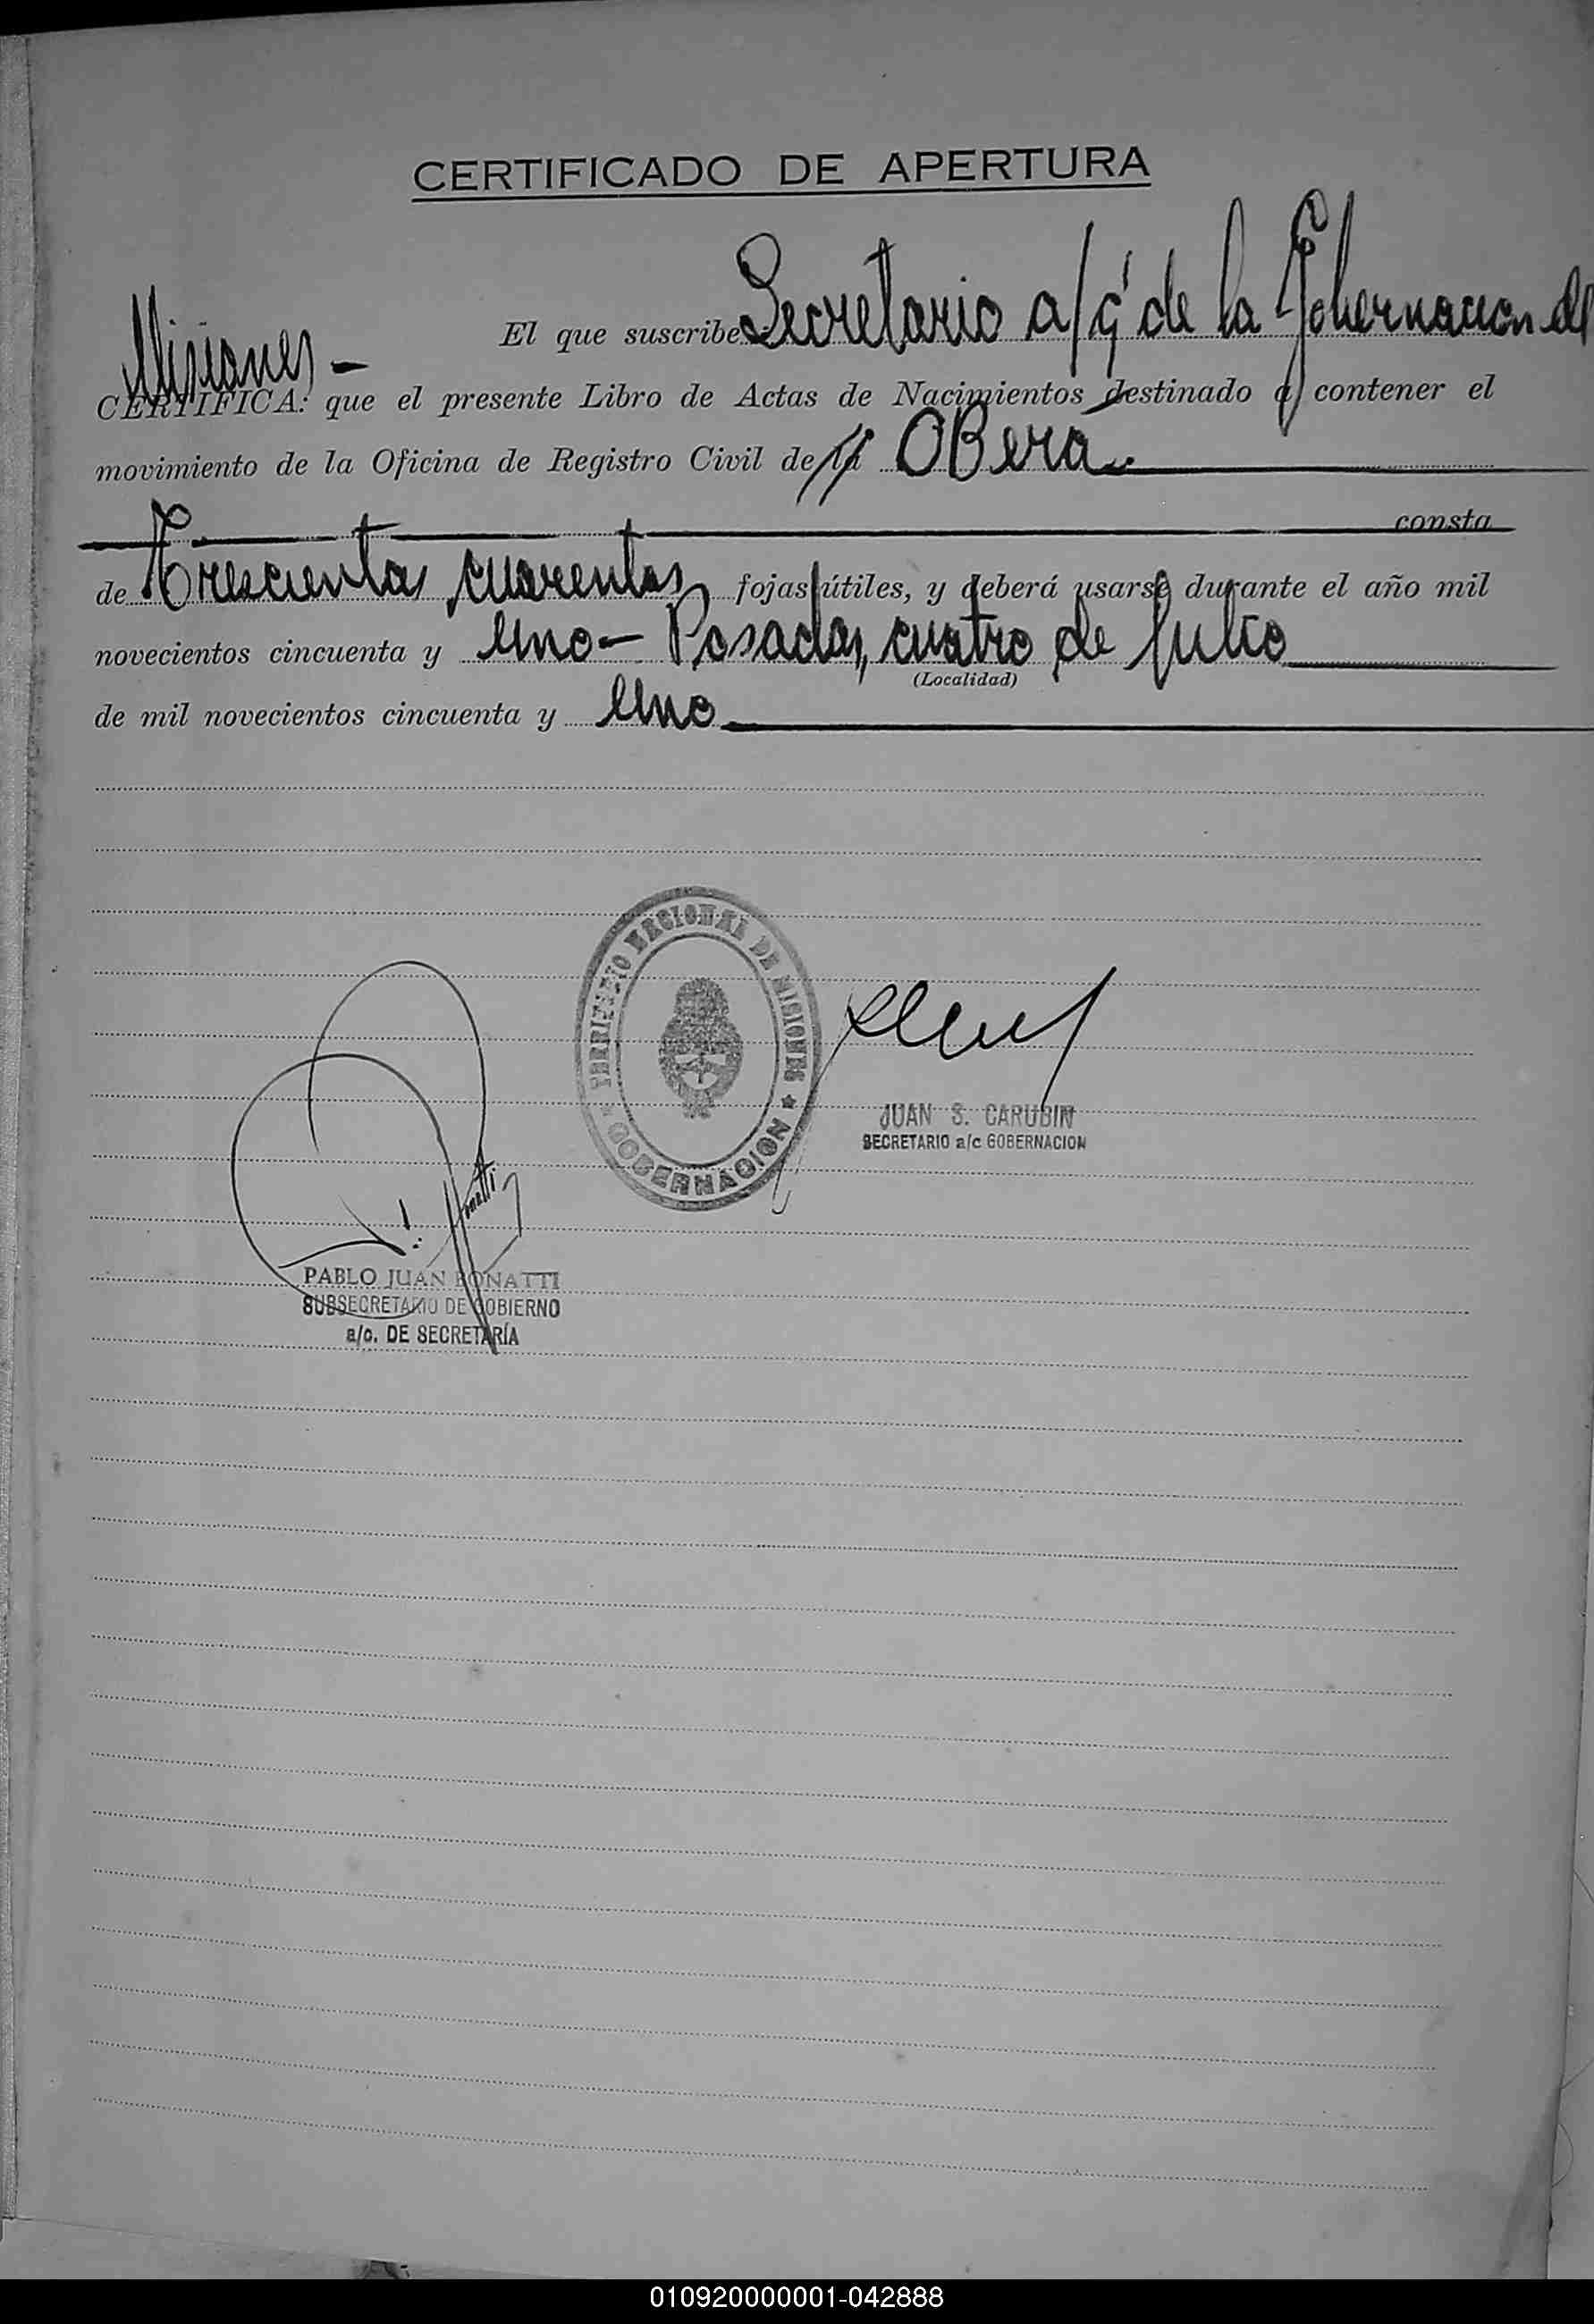 CERTIFICADO DE APERTURA
El que suscribe Secretario a/c de la Gobernacion de
Misiones -
CERTIFICA: que el presente Libro de Actas de Nacimientos destinado a contener el
movimiento de la Oficina de Registro Civil de OBera
consta
de Trescientas cuarentas fojas útiles, y deberá usarse durante el año mil
novecientos cincuenta y uno - Posadas, cuatro de Julio
(Localidad)
de mil novecientos cincuenta y uno
TERRITORIO NACIONAL DE MISIONES
GOBERNACION
JUAN S. CARUBIN
SECRETARIO a/c GOBERNACION
PABLO JUAN BONATTI
SUBSECRETARIO DE GOBIERNO
a/c. DE SECRETARÍA
010920000001-042888